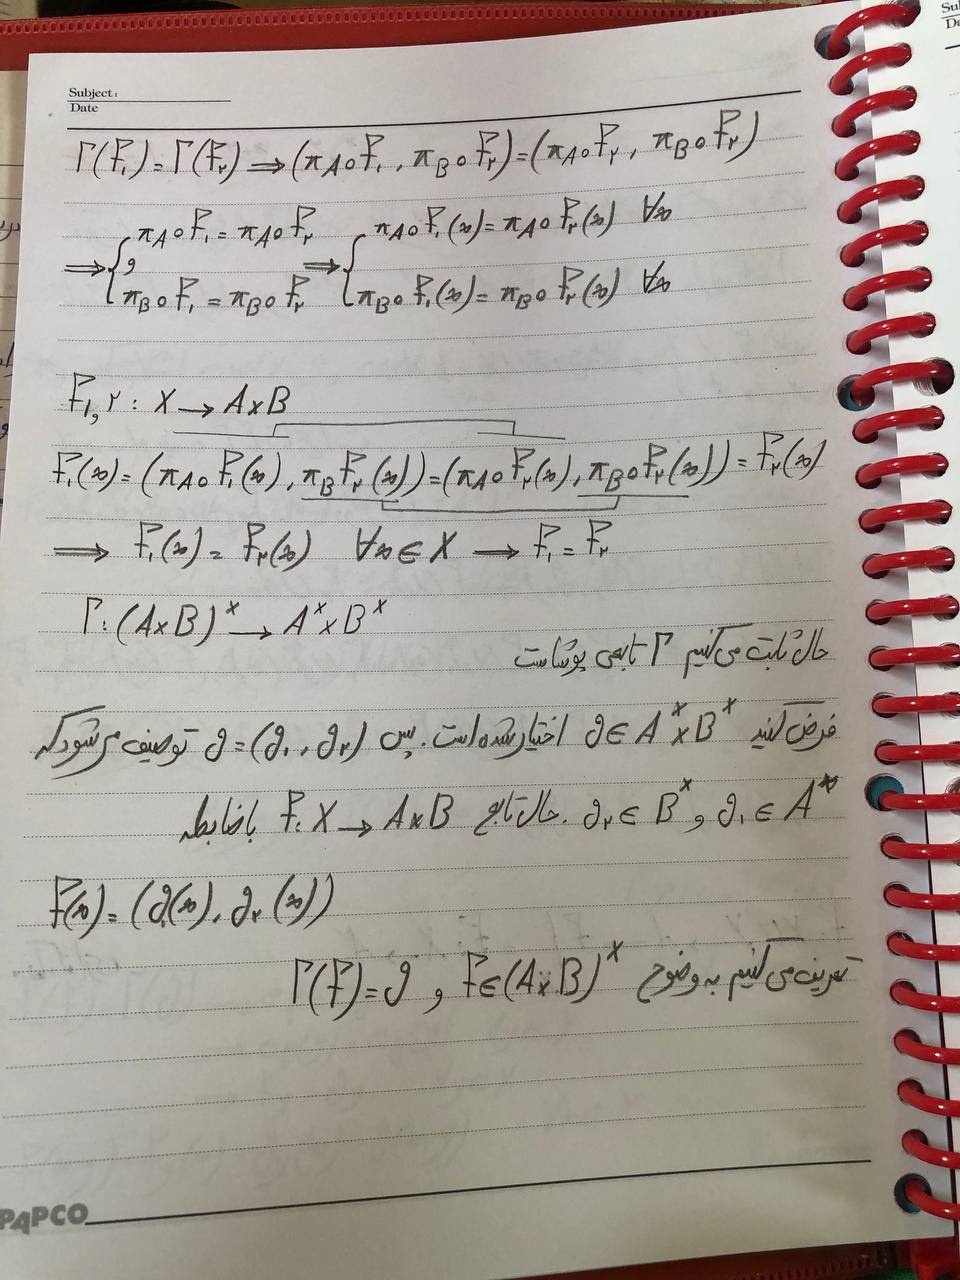 Subject:
Date
Γ(f₁) = Γ(f₂) ⟹ (π_A∘f₁ , π_B∘f₂) = (π_A∘f₂ , π_B∘f₂)
⟹ { π_A∘f₁ = π_A∘f₂ و π_B∘f₁ = π_B∘f₂ ⟹ { π_A∘f₁(x) = π_A∘f₂(x) ∀x π_B∘f₁(x) = π_B∘f₂(x) ∀x
f₁,₂ : X → A×B
f₁(x) = (π_A∘f₁(x) , π_B f₂(x)) = (π_A∘f₂(x) , π_B∘f₂(x)) = f₂(x)
⟹ f₁(x) = f₂(x) ∀x∈X → f₁ = f₂
Γ : (A×B)^X → A^X × B^X
حال ثابت می‌کنیم Γ تابعی پوشاست
فرض کنید g ∈ A^X × B^X اختیار شده است. پس g = (g₁ , g₂) توصیف می‌شود که
g₁ ∈ A^X و g₂ ∈ B^X . حال تابع f : X → A×B با ضابطه
f(x) = (g₁(x) , g₂(x))
تعریف می‌کنیم به وضوح f ∈ (A×B)^X و Γ(f) = g
PAPCO